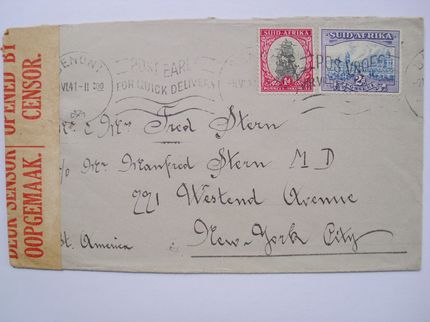 OPENED BY
CENSOR.
DEUR SENSOR
OOPGEMAAK.
BENONI
VI 41-11
POST EARLY
FOR QUICK DELIVERY
SUID-AFRIKA
1D
SUID-AFRIKA
2D
Mr. & Mrs. Fred Stern
c/o Mr Manfred Stern M D
771 Westend Avenue
New-York City
St. America